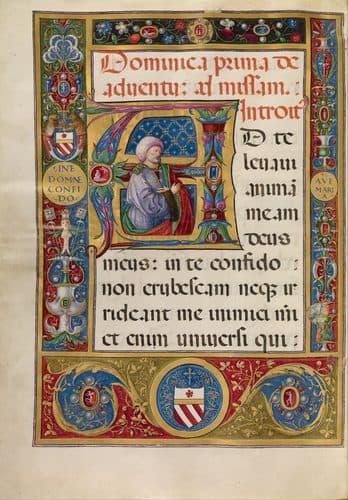 Dominica prima de
aduentu: ad missam.
Introit
A D te
leuaui
animã
meam
deus
meus: in te confido
non erubescam neq ir
rideant me inimici mi
et enim uniuersi qui:
DOMNE
CONFI
DO
AVE
MARI
A